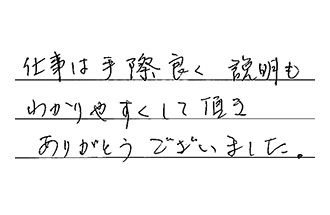 仕事は手際良く 説明も
わかりやすくして頂き
ありがとうございました。